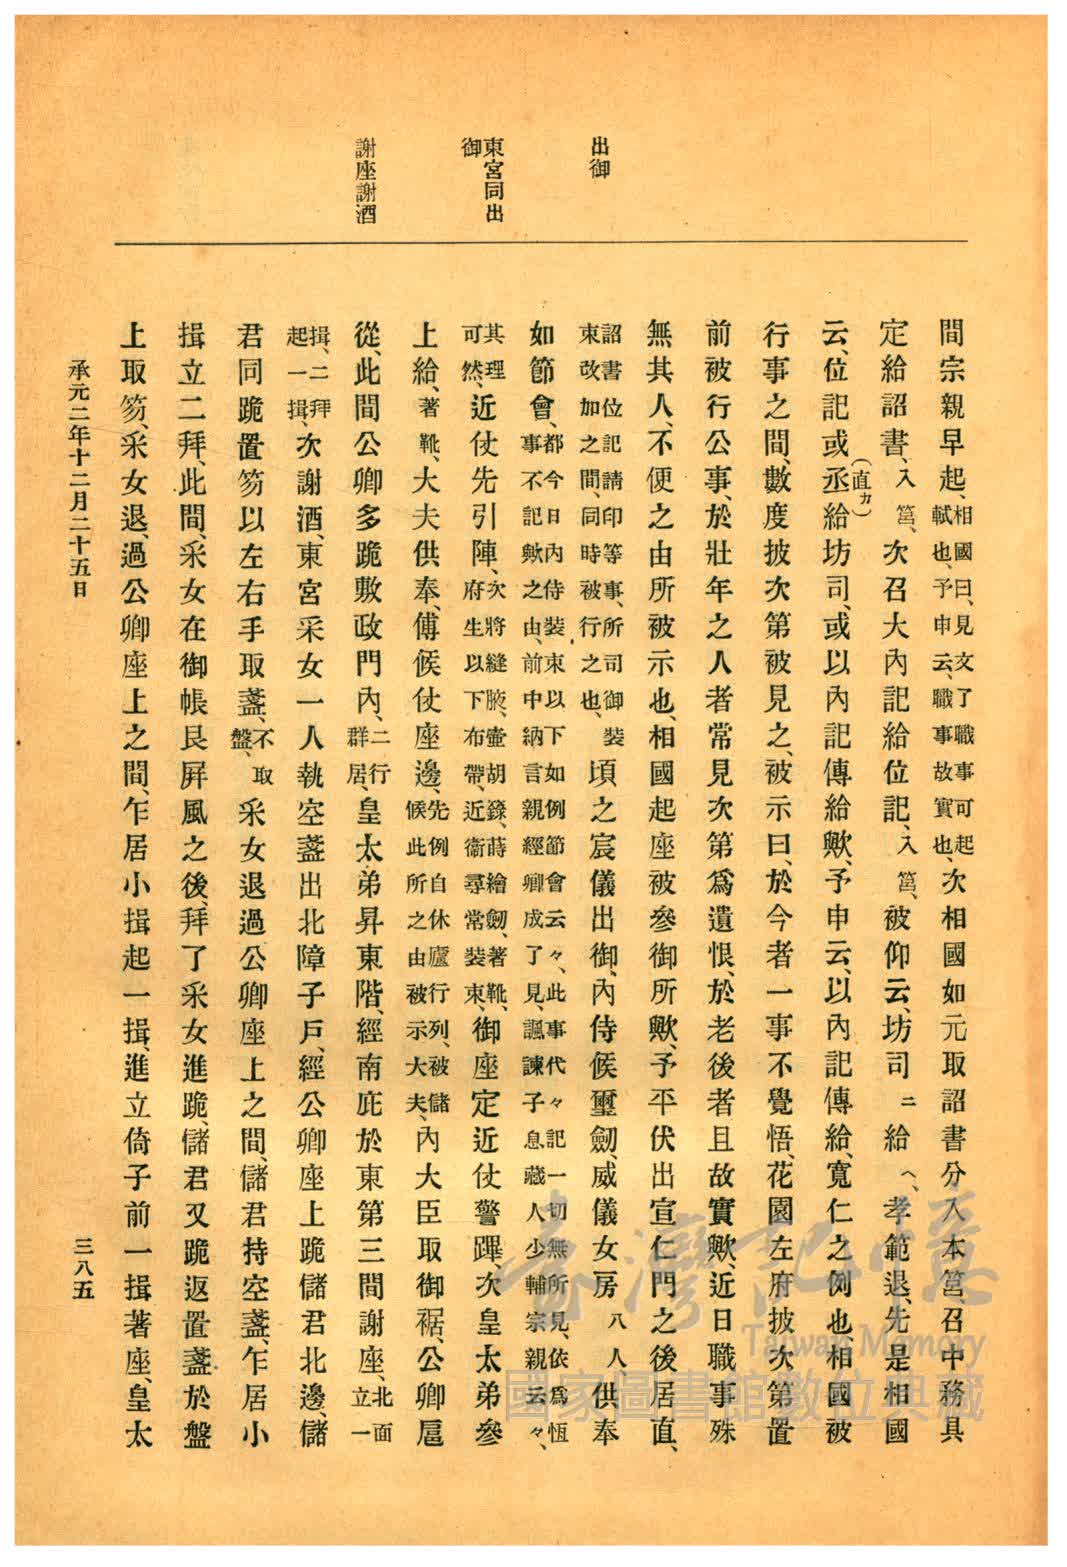 出御
東宮同出
御
謝座謝酒
間宗親早起、相國曰、見文了職事可起軾也、予申云、職事故實也、次相國如元取詔書分入本筥、召中務具
定給詔書、入筥、次召大內記給位記、入筥、被仰云、坊司ニ給ヘ、孝範退、先是相國
云、位記或丞(直カ)給坊司、或以內記傳給歟、予申云、以內記傳給、寬仁之例也、相國被
行事之間、數度披次第被見之、被示曰、於今者一事不覺悟、花園左府披次第置
前被行公事、於壯年之人者常見次第爲遺恨、於老後者且故實歟、近日職事殊
無其人、不便之由所被示也、相國起座被參御所歟、予平伏出宣仁門之後居直、
詔書位記請印等事、所司御裝束改加之間、同時被行之也、頃之宸儀出御、內侍候璽劒、威儀女房八人、供奉
如節會、都今日內侍裝束以下如例節會云々、此事代々記一切無所見、依爲恆事不記歟之由、前中納言親經卿成了見、諷諫子息藏人少輔宗親云々、
其理可然、近仗先引陣、次將縫腋、壺胡籙、蒔繪劒、著靴、府生以下布帶、近衞尋常裝束、御座定近仗警蹕、次皇太弟參
上給、著靴、大夫供奉、傅候仗座邊、先例自休廬行列、被儲候此所之由被示大夫、內大臣取御裾、公卿扈
從、此間公卿多跪敷政門內、二行群居、皇太弟昇東階、經南庇於東第三間謝座、北面立一
揖、二拜起一揖、次謝酒、東宮采女一人執空盞出北障子戶、經公卿座上跪儲君北邊、儲
君同跪置笏以左右手取盞、不取盤、采女退過公卿座上之間、儲君持空盞、乍居小
揖立二拜、此間、采女在御帳艮屏風之後、拜了采女進跪、儲君又跪返置盞於盤
上取笏、采女退、過公卿座上之間、乍居小揖起一揖、進立倚子前一揖著座、皇太
承元二年十二月二十五日
三八五
臺灣記憶
Taiwan Memory
國家圖書館數位典藏